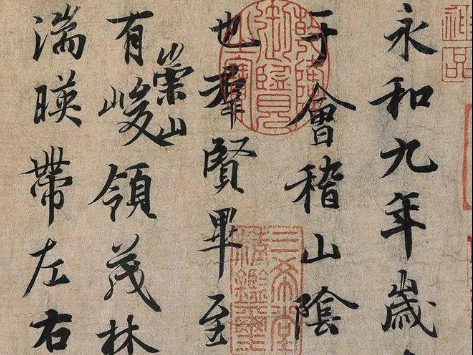 永和九年歲
于會稽山陰
也羣賢畢至
有崇山峻領茂林
湍暎帶左右
三希堂精鑑璽